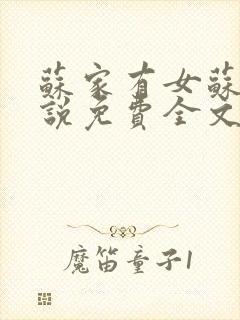 蘇家有女蘇
說免費全文
魔笛童子1